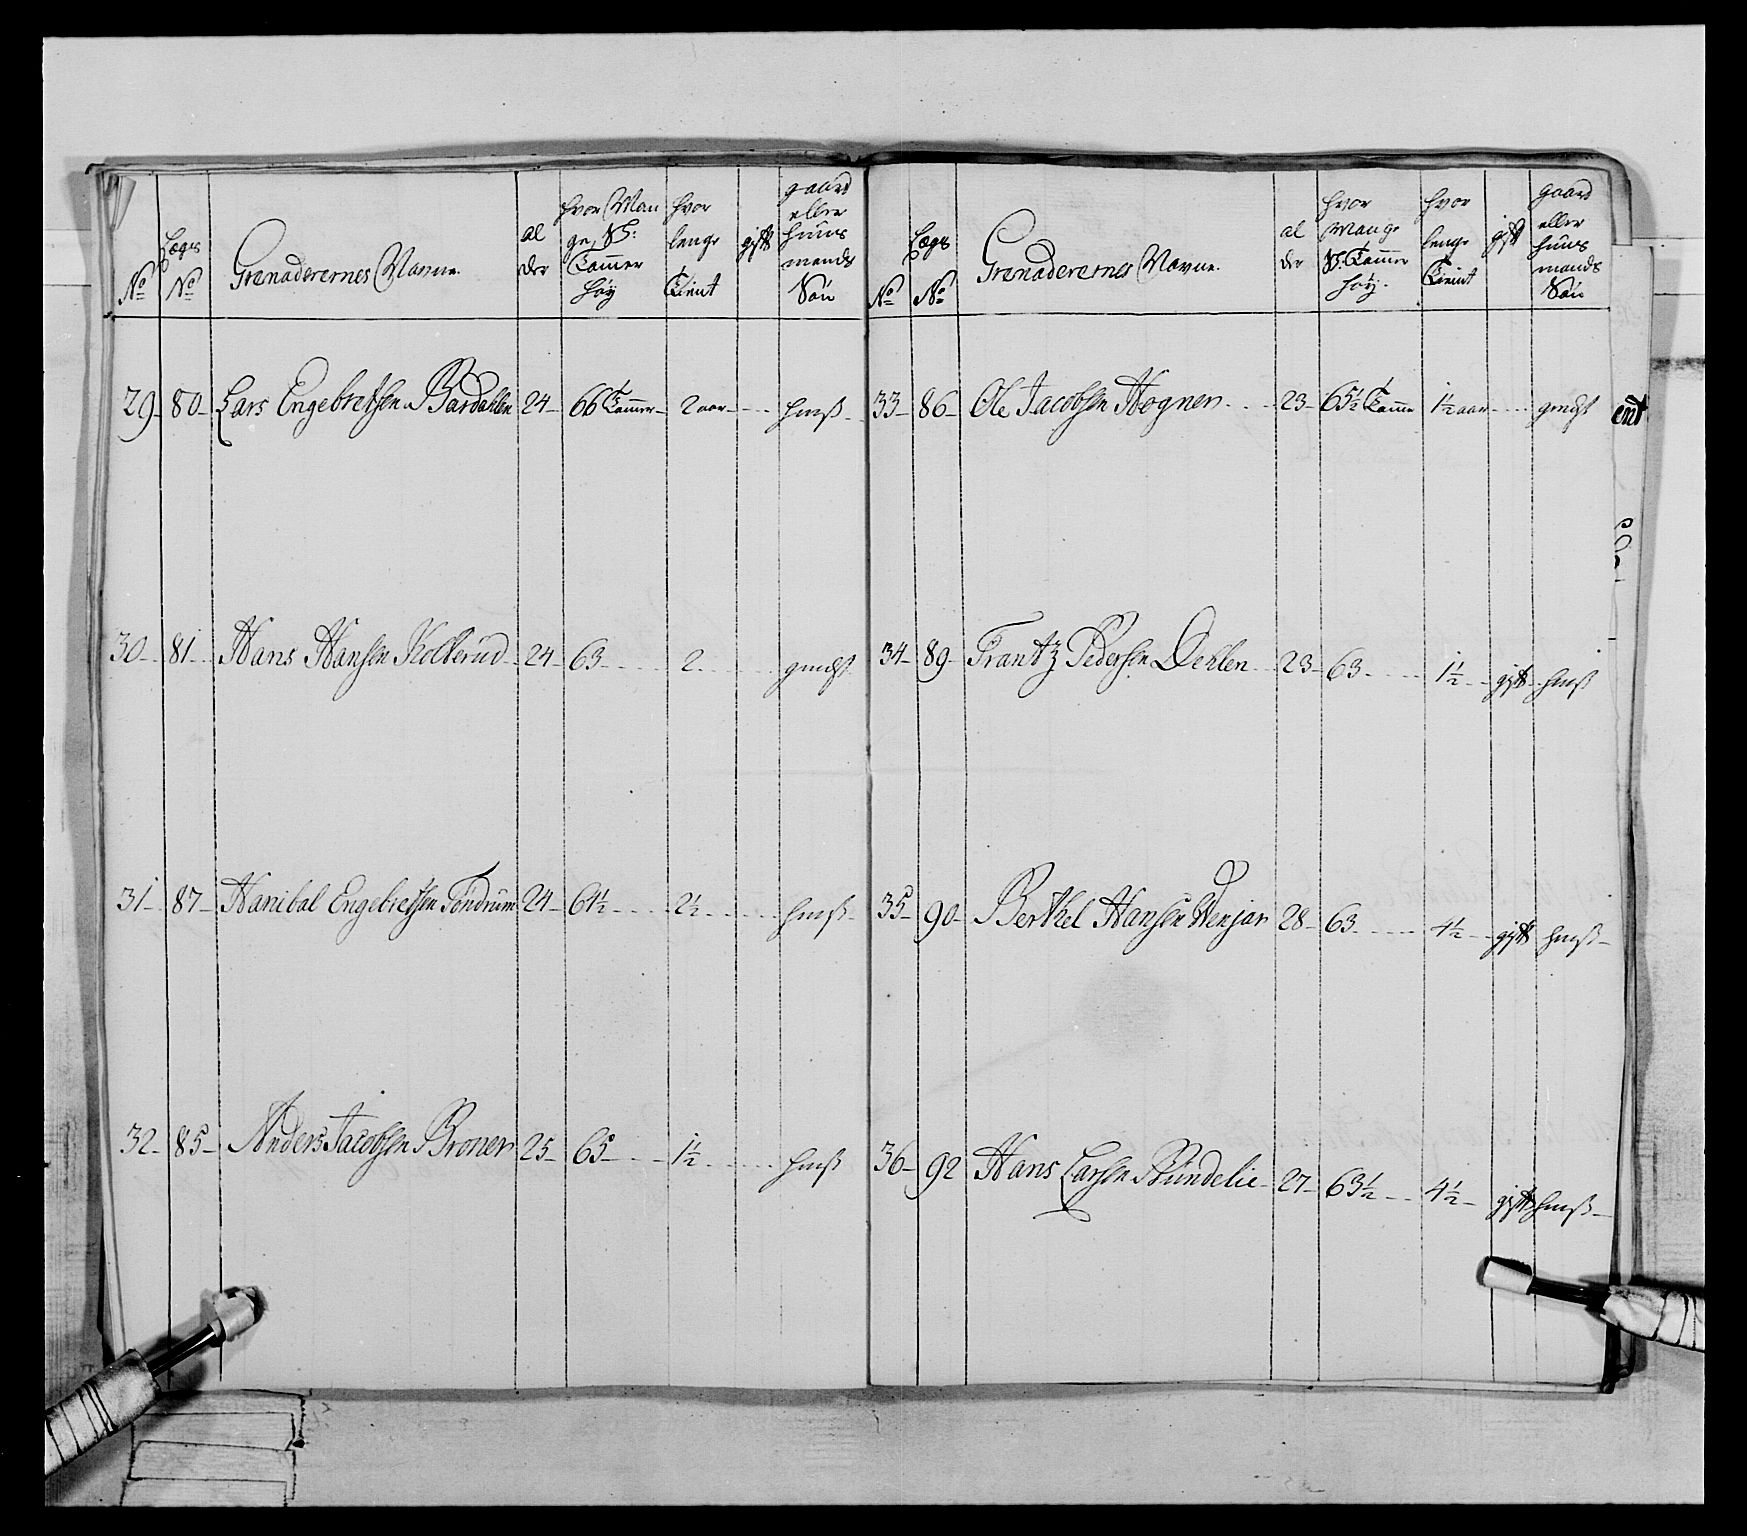 No
Lægs No
Grenaderernes Navne
al der
hvor Man ge Sk: Tommer høy
hvor lenge Tient
gift
gaard eller huus mands Søn
29 80 Lars Engebretsen Bardahlen 24 66 Tommer 2 aar hmß
30 81 Hans Hansen Kolkerud 24 63 2 gmdß
31 87 Hanibal Engebretsen Töndrum 24 64½ 2½ hmß
32 85 Anders Jacobsen Broner 25 65 1½ hmß
No
Lægs No
Grenaderernes Navne
al der
hvor Mange Tommer høy
hvor lenge Tient
gift
gaard eller huus mands Søn
33 86 Ole Jacobsen Hogner 23 65½ Tomme 1½ aar gmdß
34 89 Frantz Pedersen Dehlen 23 63 1½ gift hmß
35 90 Berthel Hansen Wenjar 28 63 4½ gift hmß
36 92 Hans Larsen Ründelie 27 63½ 4½ gift hmß
ent